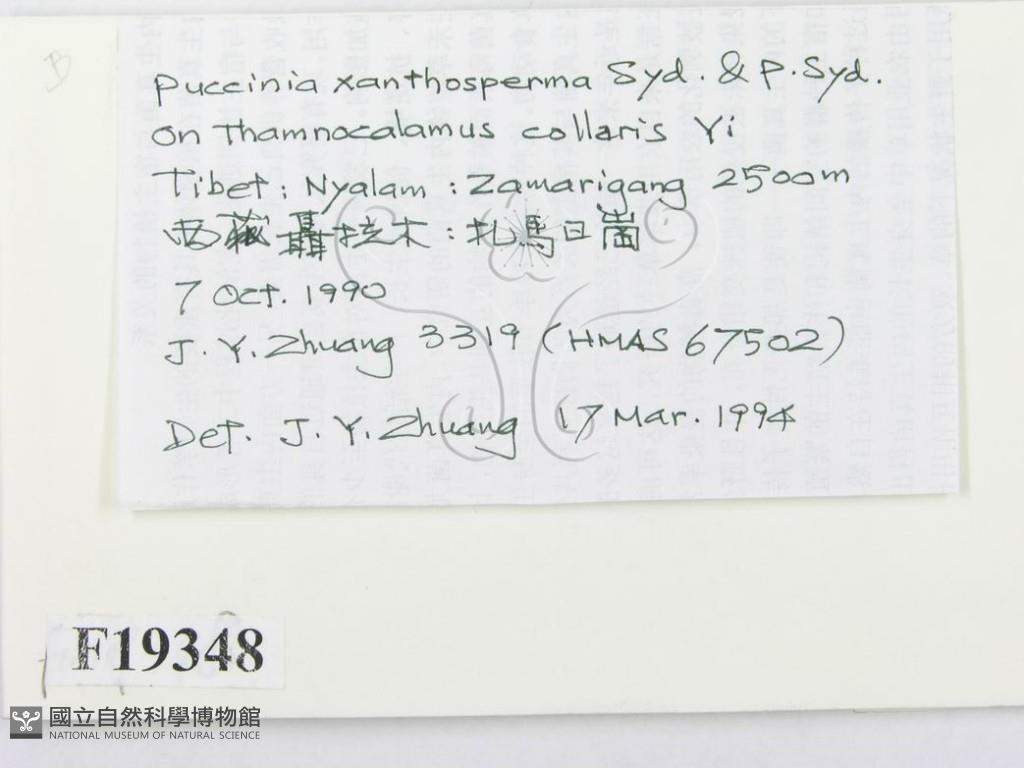 B
Puccinia xanthosperma Syd. & P. Syd.
on Thamnocalamus collaris Yi
Tibet: Nyalam: Zamarigang 2500m
西藏聶拉木:扎馬日崗
7 Oct. 1990
J. Y. Zhuang 3319 (HMAS 67502)
Det. J. Y. Zhuang 17 Mar. 1994
F19348
國立自然科學博物館
NATIONAL MUSEUM OF NATURAL SCIENCE